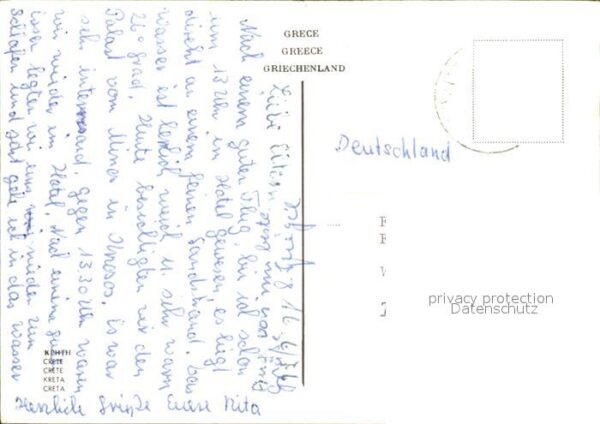 GRECE
GREECE
GRIECHENLAND
Liebe Eltern
Nach einem guten Flug, bin ich schon
um 13 Uhr im Hotel gewesen, es liegt
direkt an einem feinen Sandstrand. Das
Wasser ist herrlich weich u. sehr warm
26 grad, Heute besichtigten wir den
Palast vom Minos in Knosos, Es war
sehr interessand, gegen 13.30 Uhr waren
wir wieder im Hotel, Nach einem guten
essen legten wir uns wieder zum
Schlafen und jetzt gehe ich in das Wasser
Herzliche Grüße Eure Rita
Deutschland
privacy protection
Datenschutz
ΚΡΗΤΗ
CRETE
CRÈTE
KRETA
CRETA